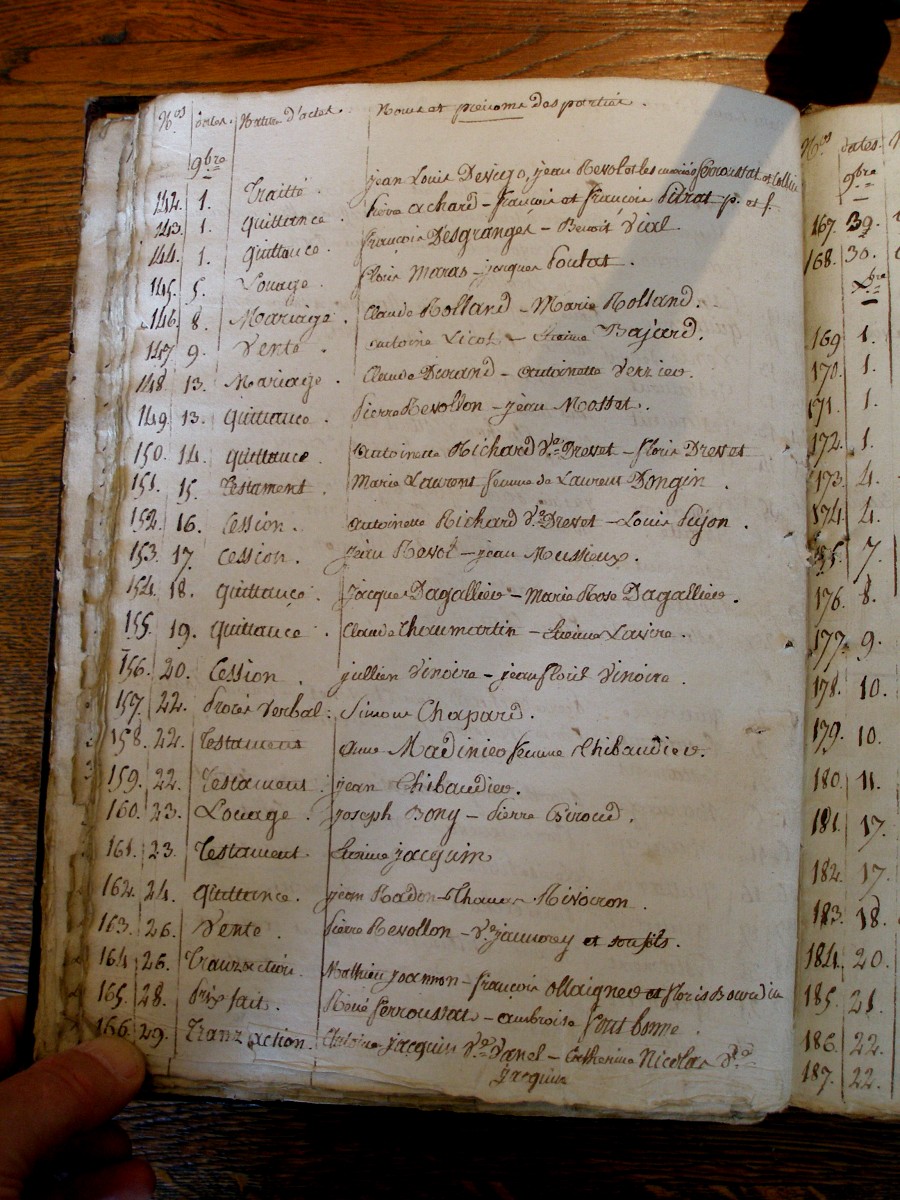 Nos dates. Nature d'actes. Noms et prénoms des parties.
9bre
142. 1. Traitté. jean Louis Devigo, jean Revol et les mariés ferroustat et
143. 1. Quittance pierre achard - françois et françois pitrat p. et f.
144. 1. Quittance. françois Desgranges - Benoit Vial
145. 5. Louage. floris Maras - jacques poulat.
146. 8. Mariage. Claude Rolland - Marie Rolland.
147. 9. Vente. antoine Licot - Etienne Bajard.
148. 13. Mariage. Claude Durand - antoinette Verzieo.
149. 13. Quittance. pierre Revollon - jean Mosset.
150. 14. quittance. antoinette Richard Ve. Drevet - floris Drevet
151. 15. Testament. Marie Laurent femme de Laurent Dongin.
152. 16. Cession. antoinette Richard Ve. Drevet - Louis pijon.
153. 17. Cession. jean Revol - jean Mussieux.
154. 18. Quittance. jacques Dagallieo - Marie Rose Dagallieo.
155. 19. Quittance. Claude thoumartin - Etienne Lavire.
156. 20. Cession. jullien Vinoire - jean florit Vinoire.
157. 22. Procès Verbal: Simon Chapard.
158. 22. Testament anne Madinieo femme thibaudieo.
159. 22. Testament. jean thibaudieo.
160. 23. Louage. joseph Bony - pierre Giroud.
161. 23. Testament Etienne jacquin
162. 24. Quittance. jean Radon - Rivoiron.
163. 26. Vente. pierre Revollon - Ve. jaumorey et son fils.
164 26. Tranzaction. Mathieu joannon - françois ollaigneo et floris Bourdin
165. 28. Prix fait. René ferroustat - ambroise font bonne.
166. 29. Tranzaction. antoine jacquin Ve. Vanel - Catherine Nicolas Ve.
jacquin
Nos dates.
9bre
167. 39.
168. 30.
Xbre
169 1.
170. 1.
171. 1.
172. 1.
173. 4.
174. 4.
175. 7.
176. 8.
177. 9.
178. 10.
179. 10.
180. 11.
181. 17.
182. 17.
183. 18.
184. 20.
185. 21.
186. 22.
187. 22.